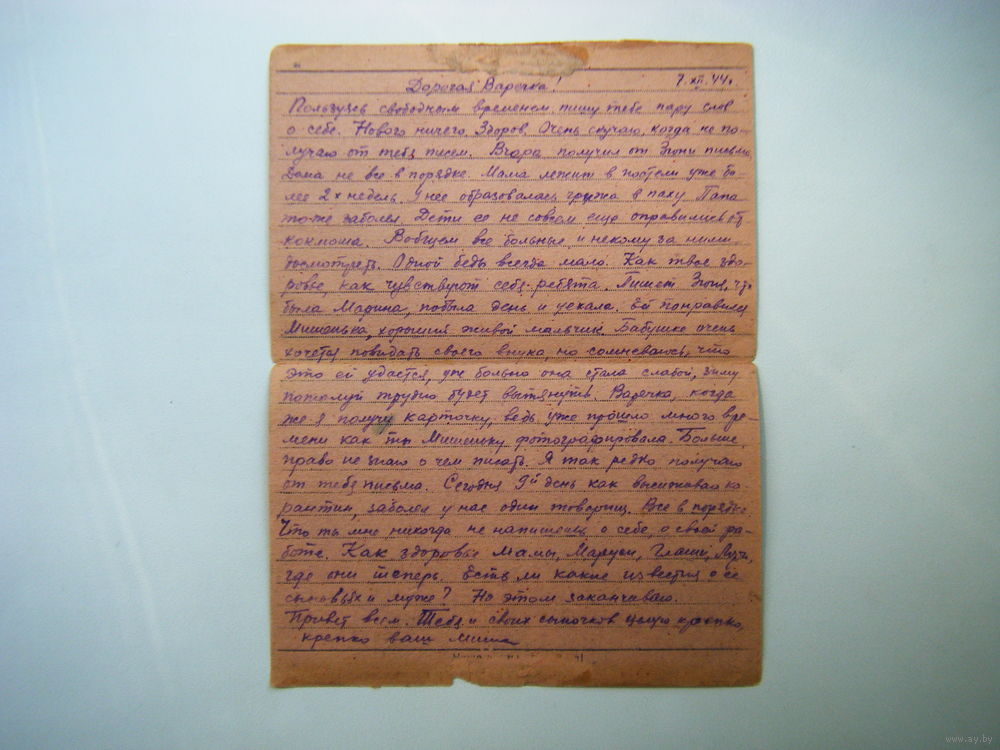 7.XII.44г.
Дорогая Варечка!
Пользуясь свободным временем пишу тебе пару слов
о себе. Нового ничего. Здоров. Очень скучаю, когда не по-
лучаю от тебя писем. Вчера получил от Зюни письмо,
Дома не все в порядке. Мама лежит в постели уже бо-
лее 2х недель. У нее образовалась грыжа в паху. Папа
то-же заболел. Дети ее не совсем еще оправились от
коклюша. Вобщем все больные и некому за ними
досмотреть. Одной беды всегда мало. Как твое здо-
ровье, как чувствуют себя ребята. Пишет Зюня, что
была Мадина, побыла день и уехала. Ей понравился
Мишенька, хороший живой мальчик. Бабушке очень
хочется повидать своего внука, но сомневаюсь, что
это ей удастся, уж больно она стала слабой, зиму
пожалуй трудно будет вытянуть. Варечка, когда
же я получу карточку, ведь уже прошло много вре-
мени как ты Мишеньку фотографировала. Больше
право не знаю о чем писать. Я так редко получаю
от тебя письма. Сегодня 9й день как высиживаю ка-
рантин, заболел у нас один товарищ. Все в порядке.
Что ты мне никогда не напишешь о себе, о своей ра-
боте. Как здоровье Мамы, Маруси, Глаши,
где они теперь. Есть ли какие известия о ее
сыновьях и муже? На этом заканчиваю.
Привет всем. Тебя и своих сыночков целую крепко,
крепко ваш Миша
www.ay.by